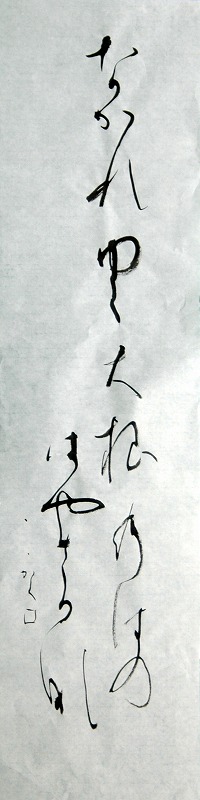 なかれゆく大根乃はの
はやさかな